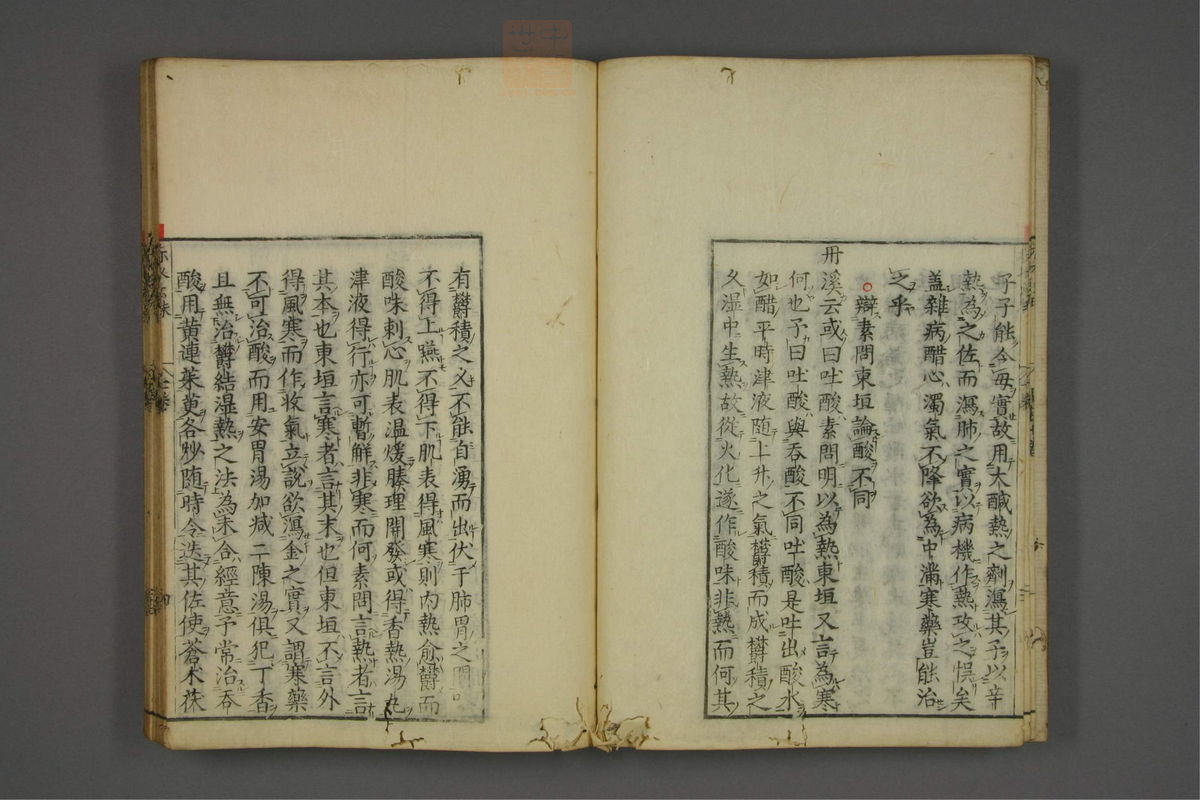 子子能令母實故用大鹹熱之劑瀉其子以辛
熱為之佐而瀉肺之實以病機作熱攻之悞矣
盖雜病醋心濁氣不降欲為中滿寒藥豈能治
之乎
辯素問東垣論酸不同
丹溪云或曰吐酸素問明以為熱東垣又言為寒
何也予曰吐酸與吞酸不同吐酸是吐出酸水
如醋平時津液随上升之氣欝積而成欝積之
久湿中生熱故從火化遂作酸味非熱而何其
有欝積之久不能自湧而出伏于肺胃之間
不得上嚥不得下肌表得風寒則内熱愈欝而
酸味刺心肌表温煖腠理開發或得香熱湯丸
津液得行亦可暫觧非寒而何素問言熱者言
其本也東垣言寒者言其末也但東垣不言外
得風寒而作收氣立說欲瀉金之實又謂寒藥
不可治酸而用安胃湯加减二陳湯俱犯丁香
且無治欝結湿熱之法為未合經意予常治吞
酸用黄連茱萸各炒随時令迭其佐使蒼术茯